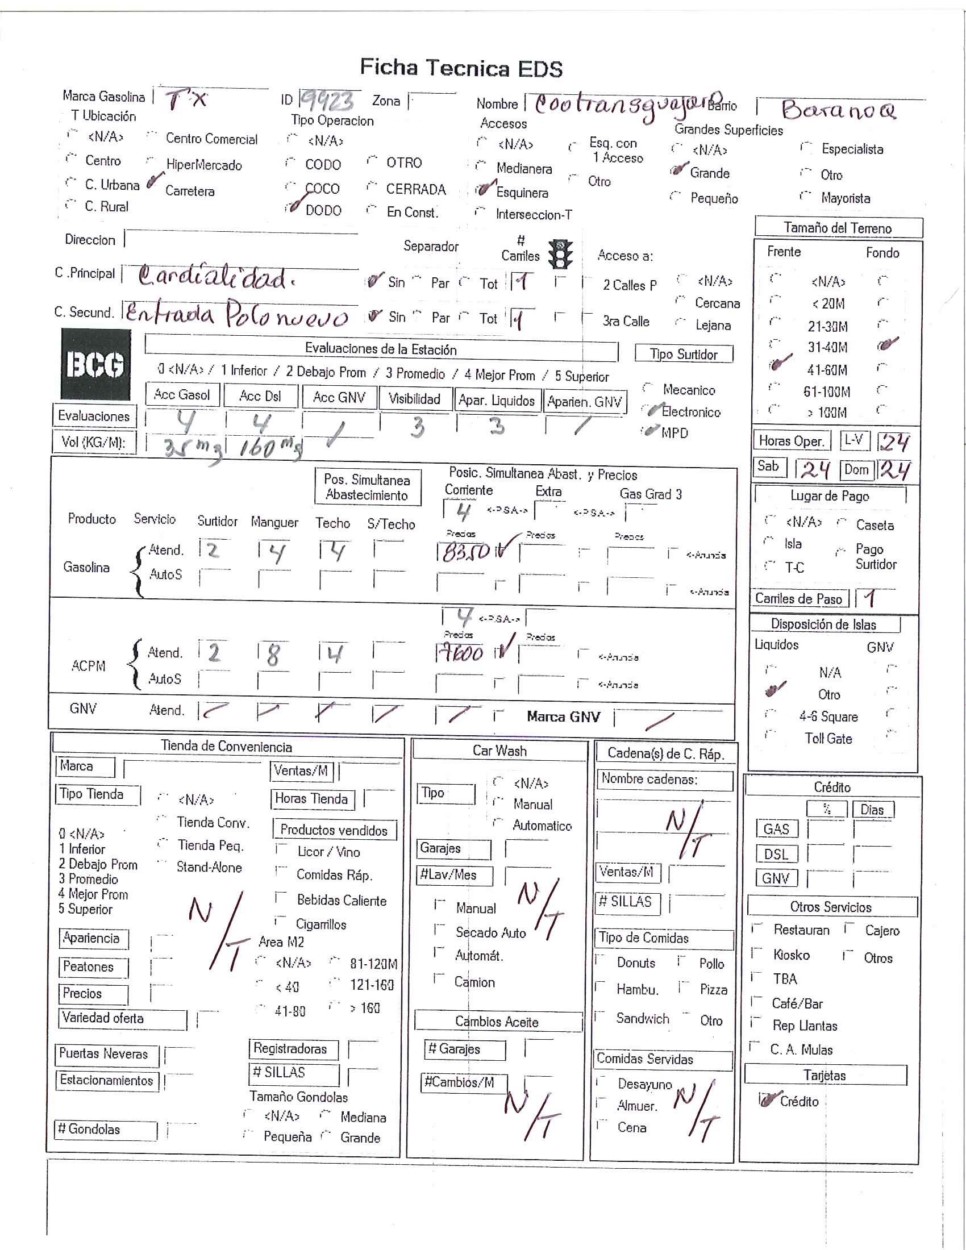 Ficha Tecnica EDS
Marca Gasolina TX ID 9923 Zona Nombre Cootransguajaro Barrio Baranoa
T Ubicación Tipo Operacion Accesos Grandes Superficies
<N/A> Centro Comercial <N/A> <N/A> Esq. con 1 Acceso <N/A> Especialista
Centro HiperMercado CODO OTRO Medianera Otro Grande Otro
C. Urbana Carretera COCO CERRADA Esquinera Pequeño Mayorista
C. Rural DODO En Const. Interseccion-T
Tamaño del Terreno
Direccion Separador # Carriles Acceso a: Frente Fondo
C .Principal Cordialidad. Sin Par Tot 1 2 Calles P <N/A> <N/A>
Cercana < 20M
C. Secund. Entrada Polonuevo Sin Par Tot 1 3ra Calle Lejana 21-30M
31-40M
41-60M
61-100M
> 100M
BCG
Evaluaciones de la Estación Tipo Surtidor
0 <N/A> / 1 Inferior / 2 Debajo Prom / 3 Promedio / 4 Mejor Prom / 5 Superior
Acc Gasol Acc Dsl Acc GNV Visibilidad Apar. Liquidos Aparien. GNV Mecanico
Evaluaciones 4 4 / 3 3 / Electronico
Vol (KG/M): 35 mg 160 mg MPD
Horas Oper. L-V 24
Sab 24 Dom 24
Pos. Simultanea Abastecimiento Posic. Simultanea Abast. y Precios
Corriente Extra Gas Grad 3
4 <-P.S.A-> <-P.S.A->
Producto Servicio Surtidor Manguer Techo S/Techo Precios Precios Precios
Gasolina Atend. 2 4 4 8350 <-Anuncia
AutoS <-Anuncia
4 <-P.S.A->
Precios Precios
ACPM Atend. 2 8 4 7600 <-Anuncia
AutoS <-Anuncia
GNV Atend. / / / / / Marca GNV /
Lugar de Pago
<N/A> Caseta
Isla Pago Surtidor
T-C
Carriles de Paso 1
Disposición de Islas
Liquidos GNV
N/A
Otro
4-6 Square
Toll Gate
Tienda de Conveniencia
Marca Ventas/M
Tipo Tienda <N/A> Horas Tienda
Tienda Conv. Productos vendidos
0 <N/A>
1 Inferior Tienda Peq. Licor / Vino
2 Debajo Prom Stand-Alone Comidas Ráp.
3 Promedio
4 Mejor Prom Bebidas Caliente
5 Superior N/T Cigarrillos
Apariencia Area M2
Peatones <N/A> 81-120M
Precios < 40 121-160
Variedad oferta 41-80 > 160
Puertas Neveras Registradoras
Estacionamientos # SILLAS
Tamaño Gondolas
<N/A> Mediana
# Gondolas Pequeña Grande
Car Wash
Tipo <N/A>
Manual
Automatico
Garajes
#Lav/Mes N/T
Manual
Secado Auto
Automát.
Camion
Cambios Aceite
# Garajes
#Cambios/M N/T
Cadena(s) de C. Ráp.
Nombre cadenas:
N/T
Ventas/M
# SILLAS
Tipo de Comidas
Donuts Pollo
Hambu. Pizza
Sandwich Otro
Comidas Servidas
Desayuno
Almuer. N/T
Cena
Crédito
% Dias
GAS
DSL
GNV
Otros Servicios
Restauran Cajero
Kiosko Otros
TBA
Café/Bar
Rep Llantas
C. A. Mulas
Tarjetas
Crédito